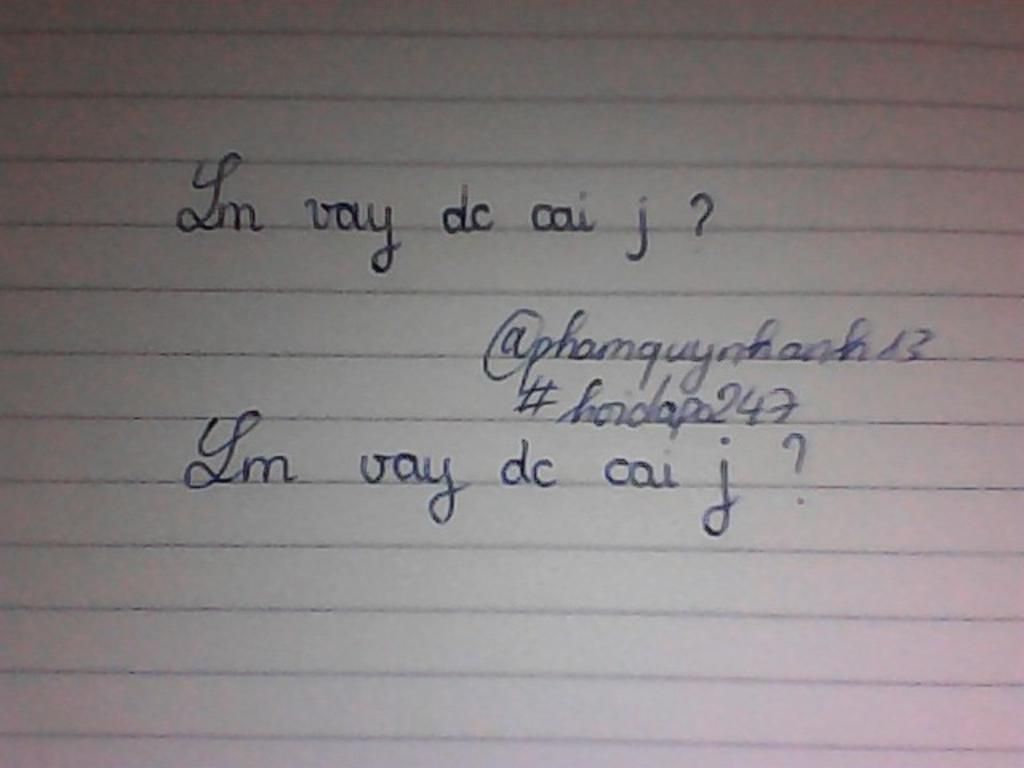 Lm vay dc cai j ?
@phamquynhanh13
# hoidap247
Lm vay dc cai j ?